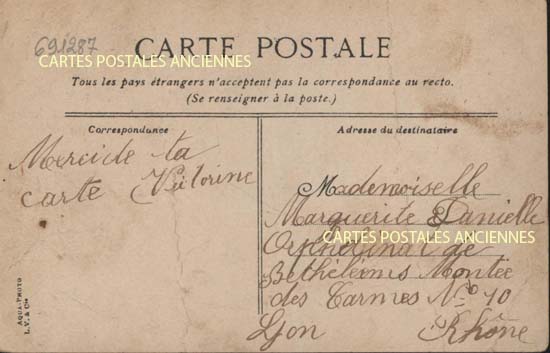 691287
CARTE POSTALE
CARTES POSTALES ANCIENNES
Tous les pays étrangers n'acceptent pas la correspondance au recto.
(Se renseigner à la poste.)
Correspondance
Merci de ta
carte Victorine
Adresse du destinataire
Mademoiselle
Marguerite Danielle
CARTES POSTALES ANCIENNES
Orphelinat de
Bethéleèms Montée
des Carmes No 10
Lyon Rhône
AQUA-PHOTO
L. V. & Cie